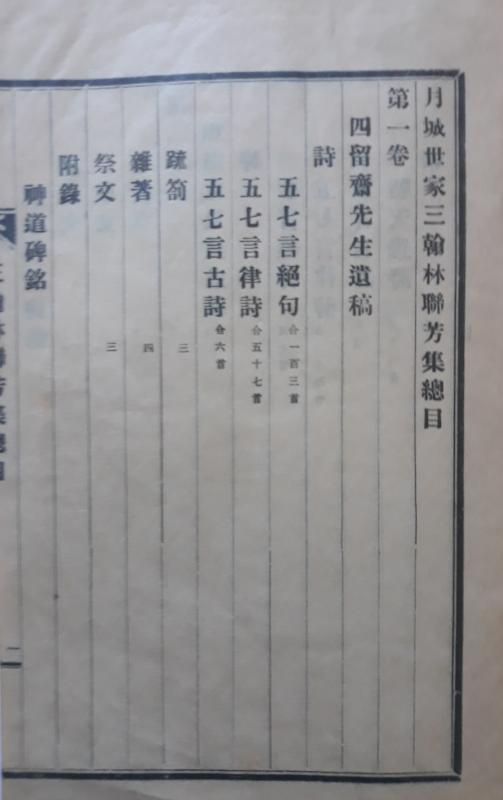 月城世家三翰林聯芳集總目
第一卷
四留齋先生遺稿
詩
五七言絕句 合一百三首
五七言律詩 合五十七首
五七言古詩 合六首
疏箚 三
雜著 四
祭文 三
附錄
神道碑銘
林聯芳集總目
二